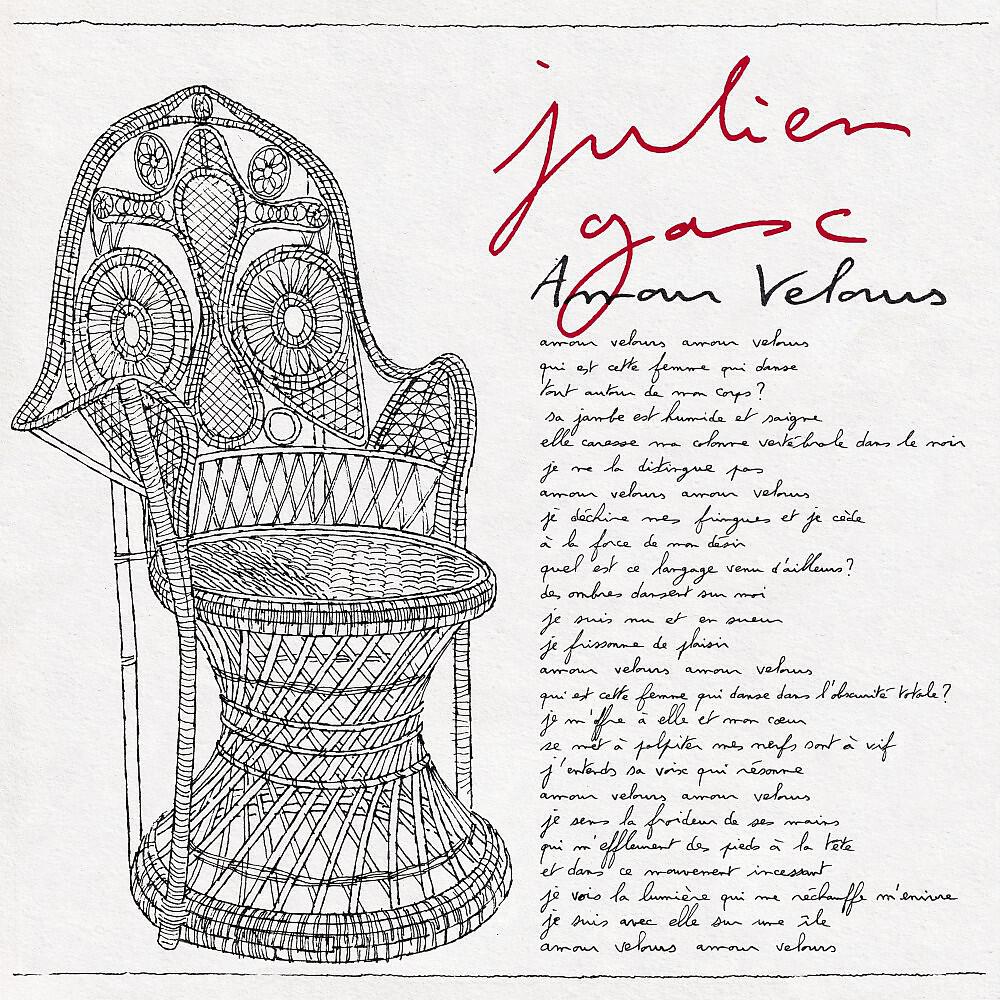 julien
gasc
Amour Velours
amour velours amour velours
qui est cette femme qui danse
tout autour de mon corps?
sa jambe est humide et saigne
elle caresse ma colonne vertébrale dans le noir
je ne la distingue pas
amour velours amour velours
je déchire mes fringues et je cède
à la force de mon désir
quel est ce langage venu d'ailleurs?
des ombres dansent sur moi
je suis nu et en sueur
je frissonne de plaisir
amour velours amour velours
qui est cette femme qui danse dans l'obscurité totale?
je m'offre à elle et mon cœur
se met à palpiter mes nerfs sont à vif
j'entends sa voix qui résonne
amour velours amour velours
je sens la froideur de ses mains
qui m'effleurent des pieds à la tête
et dans ce mouvement incessant
je vois la lumière qui me réchauffe m'enivre
je suis avec elle sur une île
amour velours amour velours